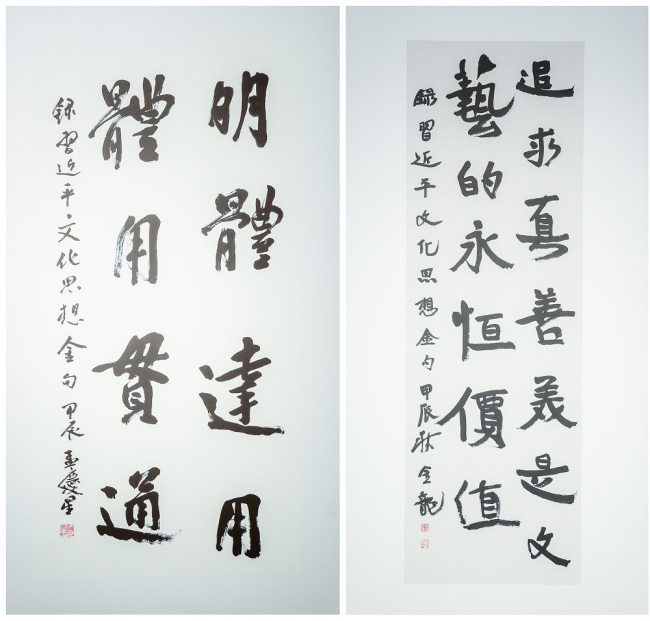 明體達用
體用貫通
録習近平文化思想金句 甲辰 孟慶星
追求真善美是文
藝的永恒價值
録習近平文化思想金句 甲辰秋 金龍